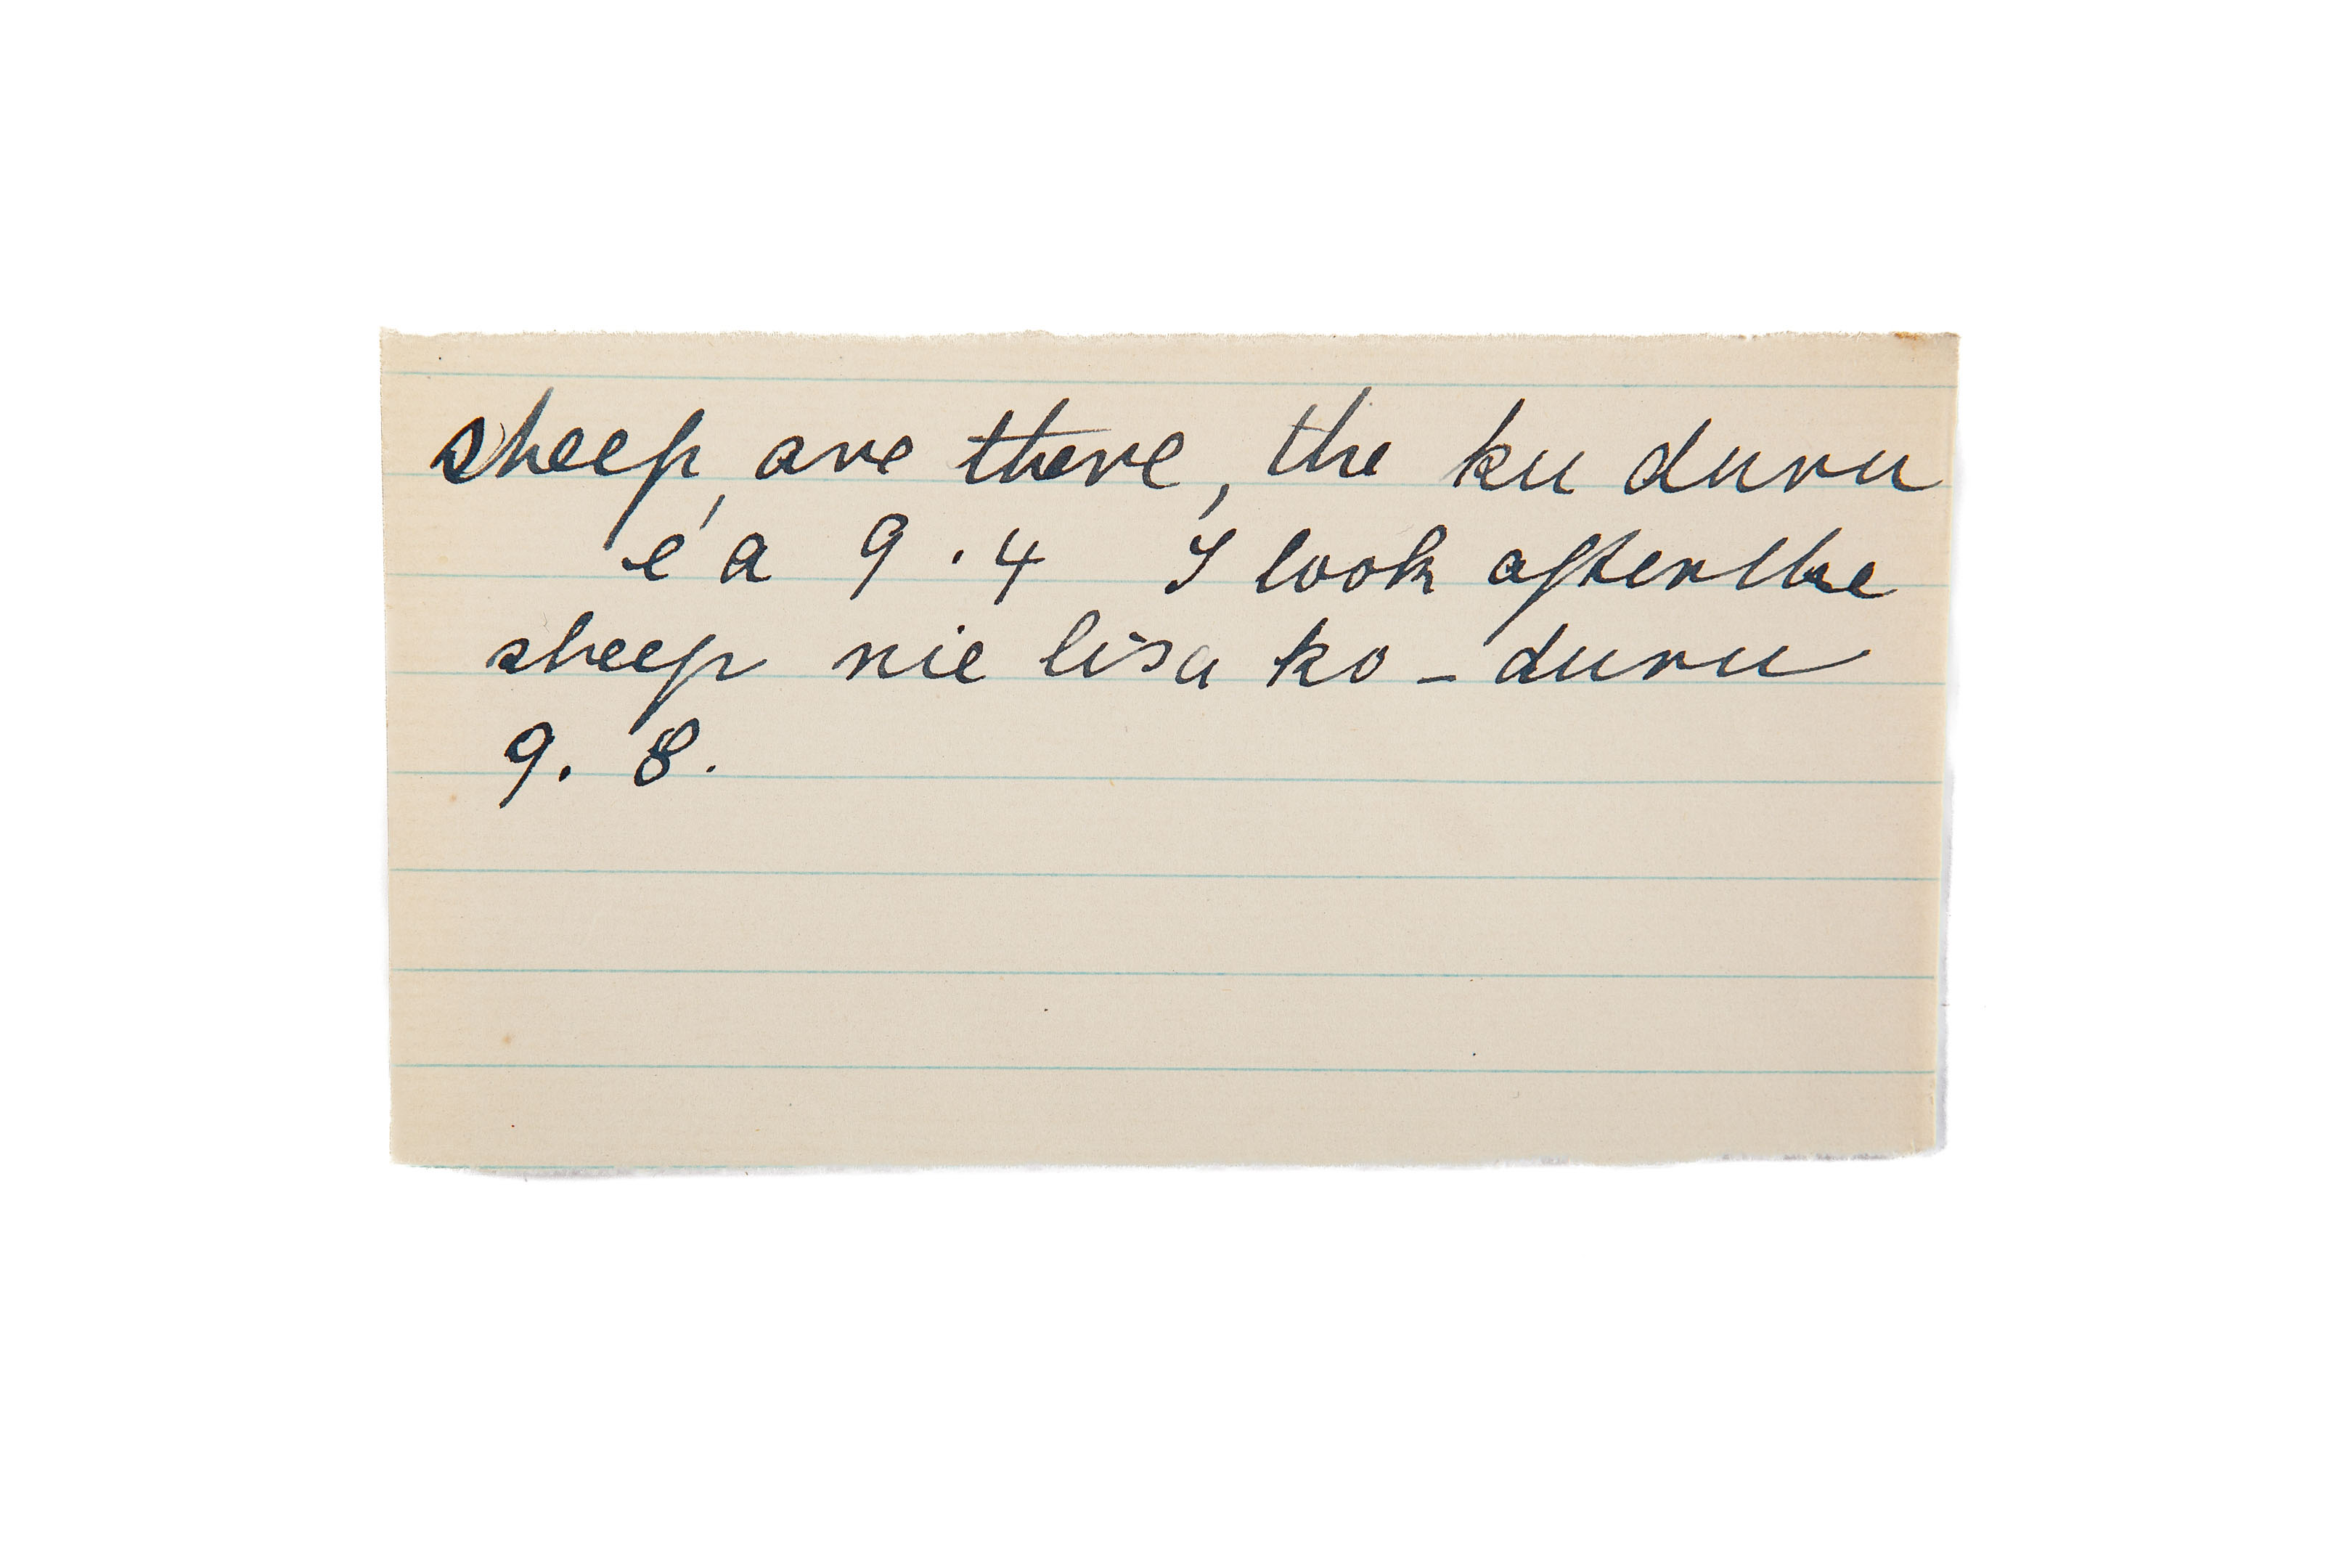 sheep, are there, the ku duru
é a 9.4 I look after the
sheep nie lisa ko - duru
9. 8.